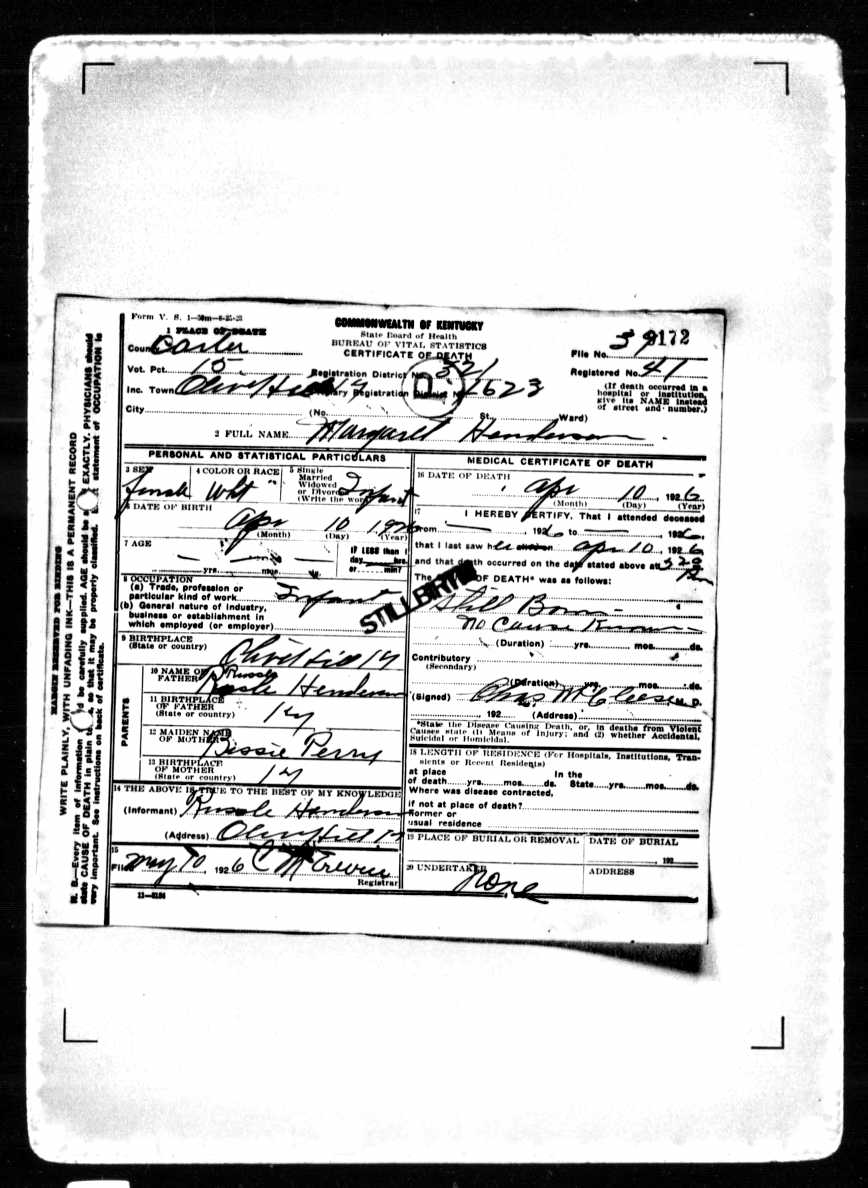 Form V. S. 1—50m—8-25-23
COMMONWEALTH OF KENTUCKY
State Board of Health
BUREAU OF VITAL STATISTICS
CERTIFICATE OF DEATH
1 PLACE OF DEATH
County Carter
Vot. Pct. 15
Inc. Town Olive Hill Ky
City
Registration District No. 521
Primary Registration District No. 1623
D.
(No. St. Ward)
File No. 9172
Registered No. 41
(If death occurred in a
hospital or institution,
give its NAME instead
of street and number.)
2 FULL NAME Margaret Henderson
PERSONAL AND STATISTICAL PARTICULARS
3 SEX female
4 COLOR OR RACE Wht
5 Single
Married
Widowed
or Divorced
(Write the word) Infant
6 DATE OF BIRTH Apr 10 1926
(Month) (Day) (Year)
7 AGE
yrs. mos.
IF LESS than 1
day hrs.
or min?
8 OCCUPATION
(a) Trade, profession or
particular kind of work Infant
(b) General nature of Industry,
business or establishment in
which employed (or employer)
9 BIRTHPLACE
(State or country) Olive Hill Ky
PARENTS
10 NAME OF
FATHER Henderson
11 BIRTHPLACE
OF FATHER
(State or country) Ky
12 MAIDEN NAME
OF MOTHER Bissie Perry
13 BIRTHPLACE
OF MOTHER
(State or country) Ky
14 THE ABOVE IS TRUE TO THE BEST OF MY KNOWLEDGE
(Informant) Henderson
(Address) Olive Hill Ky
15
Filed May 10, 1926
Registrar
11—9184
MEDICAL CERTIFICATE OF DEATH
16 DATE OF DEATH Apr 10, 1926
(Month) (Day) (Year)
17 I HEREBY CERTIFY, That I attended deceased
from — , 1926 to — , 1926,
that I last saw her alive on Apr 10, 1926
and that death occurred on the date stated above at
The CAUSE OF DEATH* was as follows:
STILLBIRTH
Still Born
No Cause Known
(Duration) yrs. mos. ds.
Contributory
(Secondary)
(Duration) yrs. mos. ds.
(Signed) Chas M. D.
192 (Address)
*State the Disease Causing Death, or, in deaths from Violent
Causes state (1) Means of Injury; and (2) whether Accidental,
Suicidal or Homicidal.
18 LENGTH OF RESIDENCE (For Hospitals, Institutions, Tran-
sients or Recent Residents)
at place In the
of death yrs. mos. ds. State yrs. mos. ds.
Where was disease contracted,
if not at place of death?
Former or
usual residence
19 PLACE OF BURIAL OR REMOVAL
DATE OF BURIAL
192
20 UNDERTAKER None
ADDRESS
MARGIN RESERVED FOR BINDING
WRITE PLAINLY, WITH UNFADING INK—THIS IS A PERMANENT RECORD
N. B.—Every item of information should be carefully supplied. AGE should be stated EXACTLY. PHYSICIANS should
state CAUSE OF DEATH in plain terms, so that it may be properly classified. Exact statement of OCCUPATION is
very important. See instructions on back of certificate.